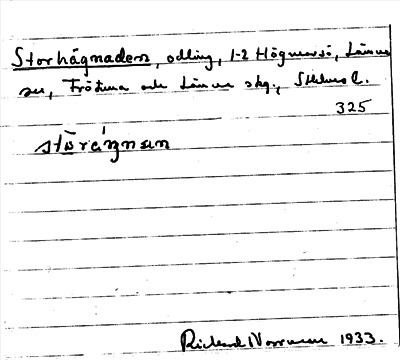 Storhägnaden, odling, 1-2 Högmarsö, Länna
sn, Frötuna och Länna skg., Sthlms l.
325
stòréŋnan
Rickard Norrman 1933.